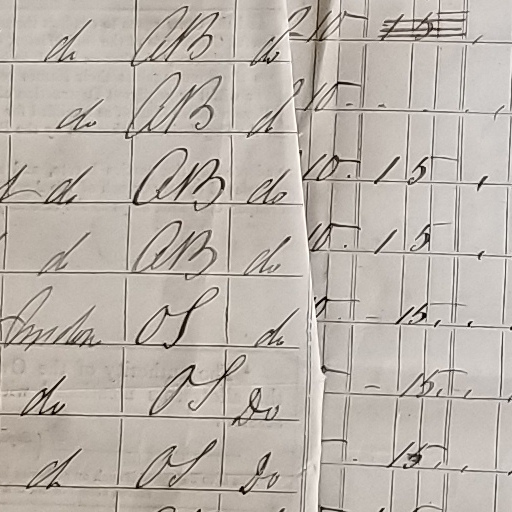 do AB do 2 10 15
do AB do 10
do AB do 10. 15
do AB do 10. 15
London OS do 15
do OS Do 15
do OS Do 15